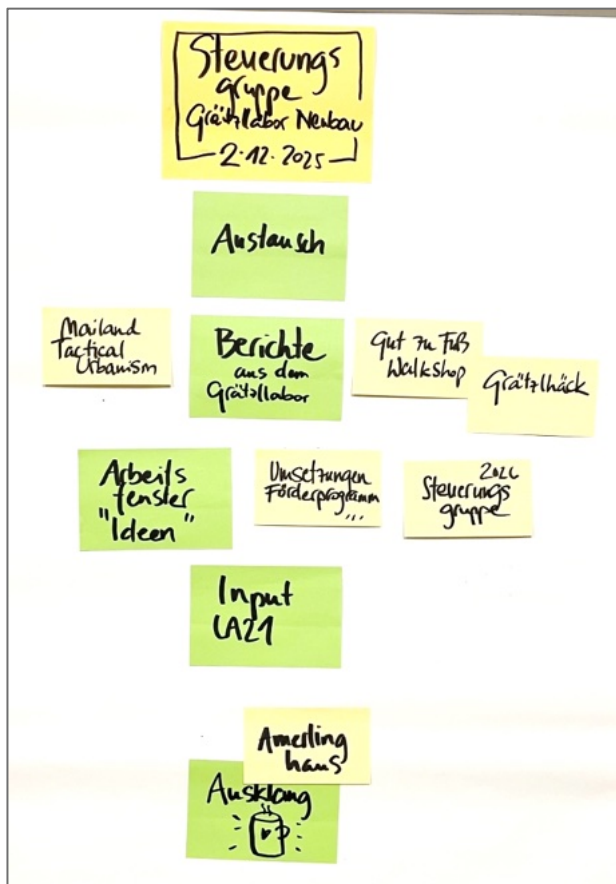 Steuerungs
gruppe
Grätzllabor Neubau
2.12.2025
Austausch
Mailand
Tactical
Urbanism
Berichte
aus dem
Grätzllabor
Gut zu Fuß
Walkshop
Grätzlhäck
Arbeits
fenster
"Ideen"
Umsetzungen
Förderprogramm
...
2026
Steuerungs
gruppe
Input
LA21
Amerling
haus
Ausklang